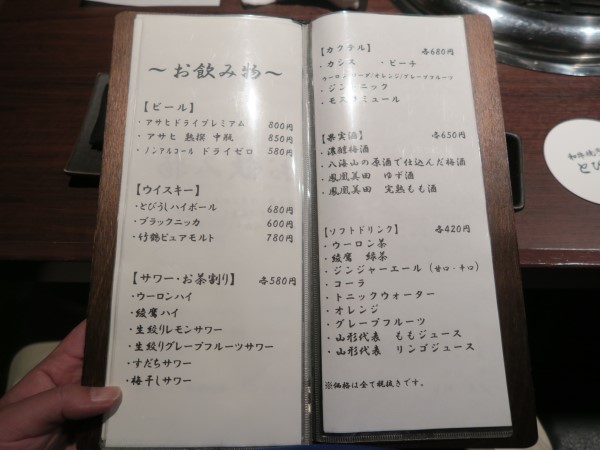 ～お飲み物～
【ビール】
・アサヒドライプレミアム 800円
・アサヒ 熟撰 中瓶 850円
・ノンアルコール ドライゼロ 580円
【ウイスキー】
・とびうしハイボール 680円
・ブラックニッカ 600円
・竹鶴ピュアモルト 780円
【サワー・お茶割り】 各580円
・ウーロンハイ
・綾鷹ハイ
・生絞りレモンサワー
・生絞りグレープフルーツサワー
・すだちサワー
・梅干しサワー
【カクテル】 各680円
・カシス ・ピーチ
ウーロン/ソーダ/オレンジ/グレープフルーツ
・ジントニック
・モスコミュール
【果実酒】 各650円
・濃醇梅酒
・八海山の原酒で仕込んだ梅酒
・鳳凰美田 ゆず酒
・鳳凰美田 完熟もも酒
【ソフトドリンク】 各420円
・ウーロン茶
・綾鷹 緑茶
・ジンジャーエール（甘口・辛口）
・コーラ
・トニックウォーター
・オレンジ
・グレープフルーツ
・山形代表 ももジュース
・山形代表 リンゴジュース
※価格は全て税抜きです。